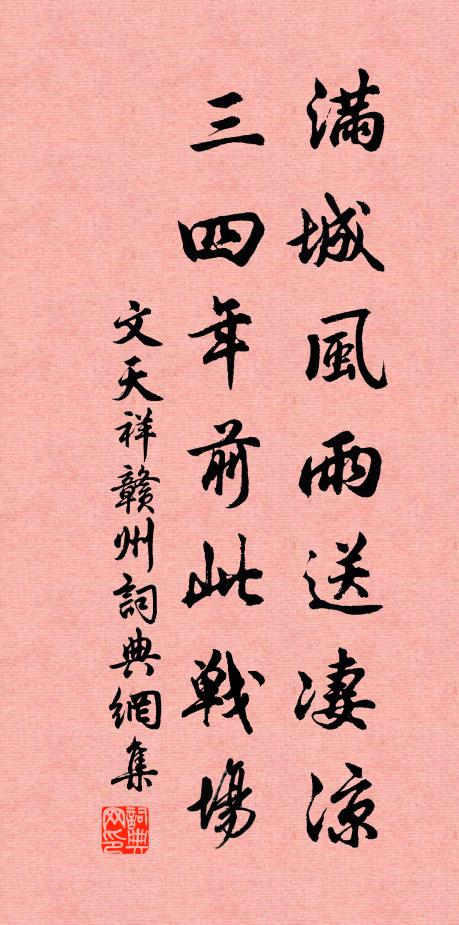 滿城風雨送凄涼
三四年前此戰場
文天祥贛州詞典網集
詞典
网印